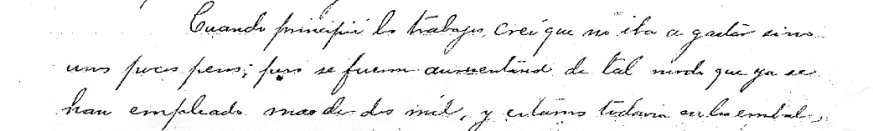 Cuando principié los trabajos, creí que no iba a gastar sino
unos pocos pesos; pero se fueron aumentando de tal modo que ya se
han empleado mas de dos mil, y estamos todavia en los